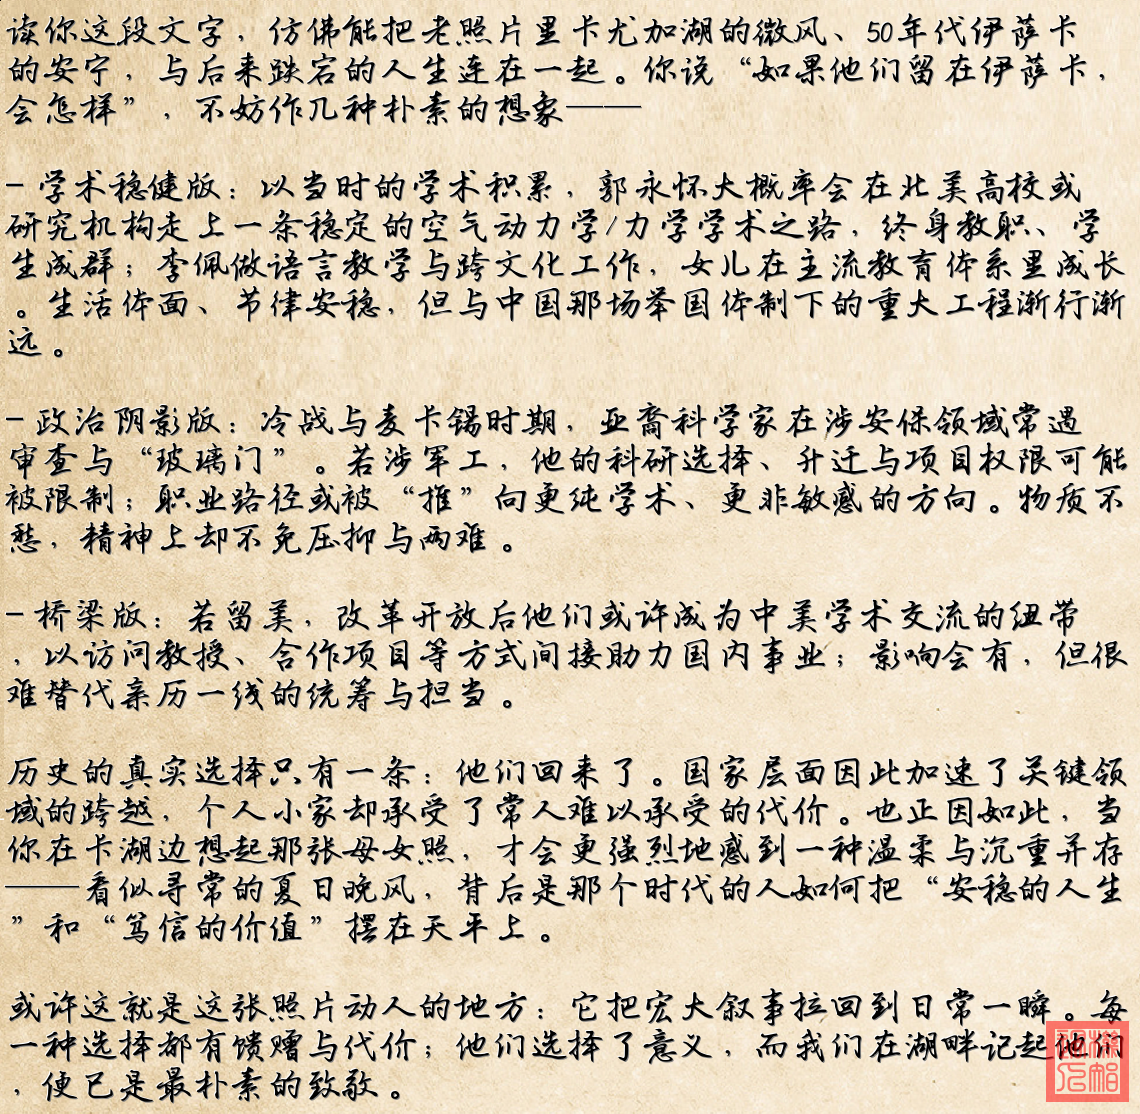 读你这段文字，仿佛能把老照片里卡尤加湖的微风、50年代伊萨卡
的安宁，与后来跌宕的人生连在一起。你说“如果他们留在伊萨卡，
会怎样”，不妨作几种朴素的想象——
- 学术稳健版：以当时的学术积累，郭永怀大概率会在北美高校或
研究机构走上一条稳定的空气动力学/力学学术之路，终身教职、学
生成群；李佩做语言教学与跨文化工作，女儿在主流教育体系里成长
。生活体面、节律安稳，但与中国那场举国体制下的重大工程渐行渐
远。
- 政治阴影版：冷战与麦卡锡时期，亚裔科学家在涉安保领域常遇
审查与“玻璃门”。若涉军工，他的科研选择、升迁与项目权限可能
被限制；职业路径或被“推”向更纯学术、更非敏感的方向。物质不
愁，精神上却不免压抑与两难。
- 桥梁版：若留美，改革开放后他们或许成为中美学术交流的纽带
，以访问教授、合作项目等方式间接助力国内事业；影响会有，但很
难替代亲历一线的统筹与担当。
历史的真实选择只有一条：他们回来了。国家层面因此加速了关键领
域的跨越，个人小家却承受了常人难以承受的代价。也正因如此，当
你在卡湖边想起那张母女照，才会更强烈地感到一种温柔与沉重并存
——看似寻常的夏日晚风，背后是那个时代的人如何把“安稳的人生
”和“笃信的价值”摆在天平上。
或许这就是这张照片动人的地方：它把宏大叙事拉回到日常一瞬。每
一种选择都有馈赠与代价；他们选择了意义，而我们在湖畔记起他们
，便已是最朴素的致敬。